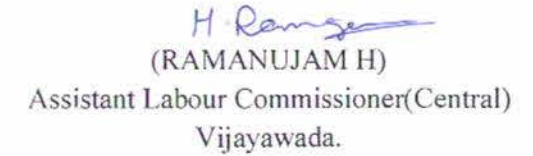 (RAMANUJAM H)
Assistant Labour Commissioner(Central)
Vijayawada.